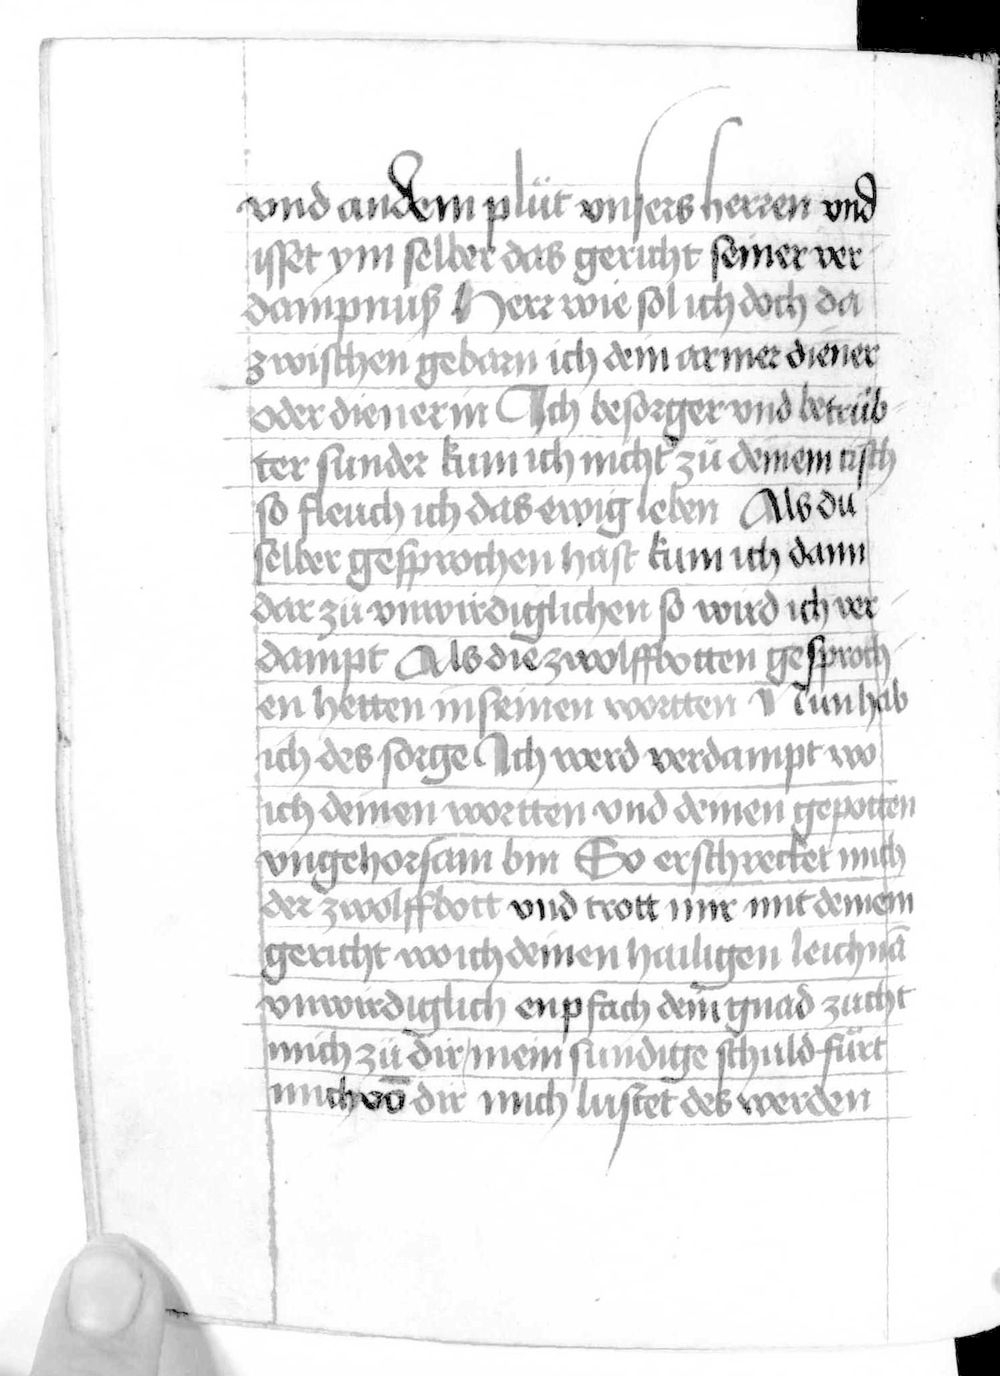 vnd an dem plüt vnsers herren vnd
isset ym selber das gericht seiner ver
dampnuß Herr wie sol ich doch da
zwischen gebarn ich dein armer diener
oder dienerin Ich besorger vnd betrüb
ter sunder kum ich nicht zü deinem tisch
so fleuch ich das ewig leben Als du
selber gesprochen hast kum ich dann
dar zü vnwirdiglichen so wird ich ver
dampt Als die zwolffbotten gesproch
en hetten in seinen wortten Nun hab
ich des sorge Ich werd verdampt wo
ich deinen wortten vnd deinen gepotten
vngehorsam bin So erschrecket mich
der zwolffbott vnd trott mir mit deinem
gericht wo ich deinen hailigen leichnā
vnwirdiglich enpfach dein gnad zücht
mich zü dir mein sundige schuld fürt
mich vō dir mich lustet des werden